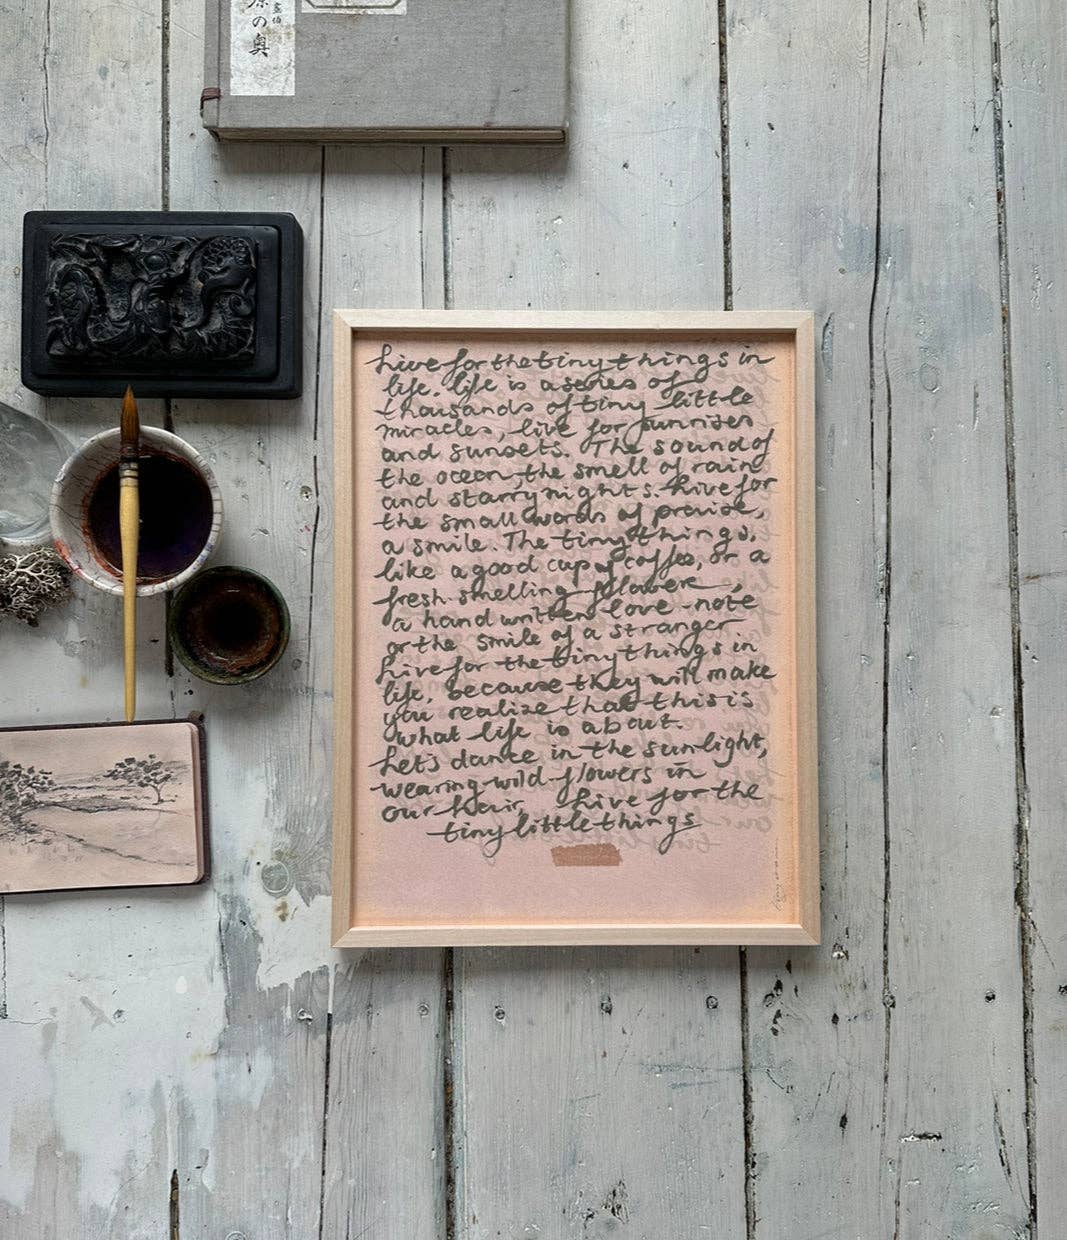 の奥
Live for the tiny things in
life. life is a series of
thousands of tiny little
miracles, live for sunrises
and sunsets. The sound of
the ocean, the smell of rain
and starry nights. Live for
the small words of praise,
a smile. The tiny things,
like a good cup of coffee, or a
fresh smelling flower,
a hand written love-note
or the smile of a stranger
Live for the tiny things in
life. because they will make
you realize that this is
what life is about.
Let's dance in the sunlight,
wearing wild flowers in
our hair, Live for the
tiny little things